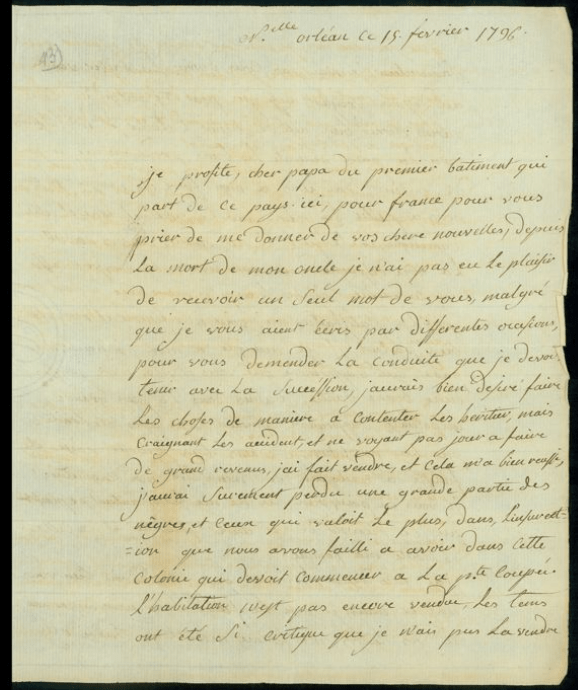 N.elle orléan ce 15. fevrier 1796.
13
je profite, cher papa du premier batiment qui
part de ce pays ici, pour france pour vous
prier de me donner de vos chere nouvelles, depuis
La mort de mon oncle je n'ai pas eu Le plaisir
de recevoir un seul mot de vous, malgré
que je vous aient écris par differentes ocasions,
pour vous demender La conduite que je devois
tenir avec La succession, jaurais bien desiré faire
Les choses de maniere a contenter Les heritier, mais
craignant Les accident, et ne voyant pas jour a faire
de grand revenus, jai fait vendre, et cela m'a bien reussi,
j'aurai surement perdu une grande partie des
nêgres, et ceux qui valoit Le plus, dans, L'insurrect=
=ion que nous avons failli a avoir dans cette
colonie qui devoit commencer a La p.te coupée.
L'habitation n'est pas encore vendue, Les tems
ont été si critique que je n'ais pus La vendre